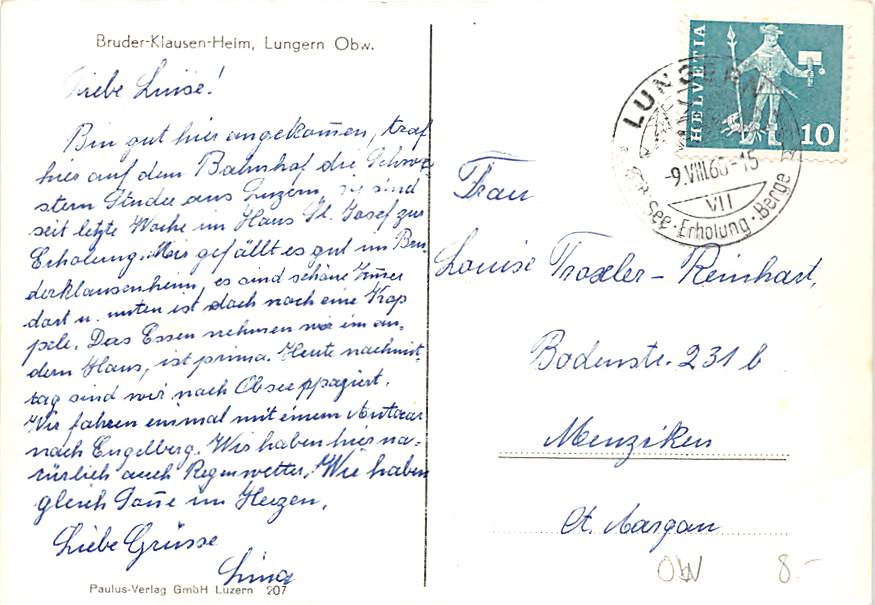 Bruder-Klausen-Heim, Lungern Obw.
Liebe Luise!
Bin gut hier angekommen, traf
hier auf dem Bahnhof die Schwe-
stern Studer aus Luzern, sie sind
seit letzte Woche im Haus St. Josef zur
Erholung. Mir gefällt es gut im Bru-
derklausenheim, es sind schöne Zimmer
dort u. unten ist doch noch eine Kap
pele. Das Essen nehmen wir im an-
dern Haus, ist prima. Heute nachmit-
tag sind wir nach Obsee spaziert.
Wir fahren einmal mit einem Autocar
nach Engelberg. Wir haben hier na-
türlich auch Regenwetter. Wir haben
gleich Sonne im Herzen.
Liebe Grüsse
Lina
Paulus-Verlag GmbH Luzern 207
HELVETIA
10
LUNGERN
-9.VIII.66-15
VII
See-Erholung-Berge
Frau
Louise Troxler-Reinhart,
Bodenstr. 231 b
Menziken
Ct. Aargau
OBW 8.-